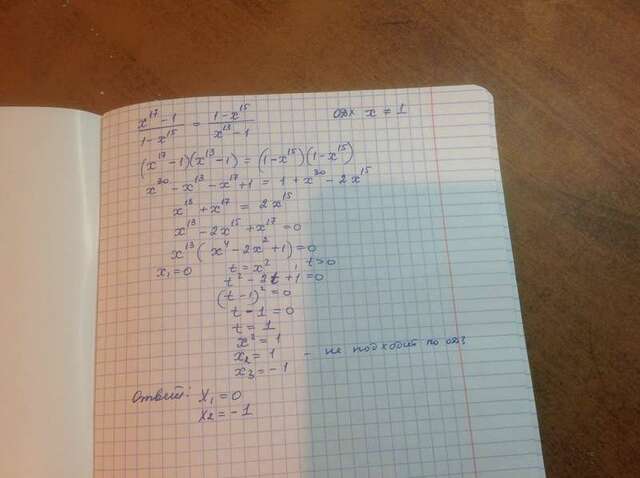 x¹⁷ - 1 / 1 - x¹⁵ = 1 - x¹⁵ / x¹³ - 1 ОДХ x ≠ 1
(x¹⁷ - 1)(x¹³ - 1) = (1 - x¹⁵)(1 - x¹⁵)
x³⁰ - x¹³ - x¹⁷ + 1 = 1 + x³⁰ - 2x¹⁵
x¹³ + x¹⁷ = 2x¹⁵
x¹³ - 2x¹⁵ + x¹⁷ = 0
x¹³(x⁴ - 2x² + 1) = 0
x₁ = 0 t = x², t > 0
t² - 2t + 1 = 0
(t - 1)² = 0
t - 1 = 0
t = 1
x² = 1
x₂ = 1 - не подходит по одз
x₃ = -1
Ответ: x₁ = 0
x₂ = -1